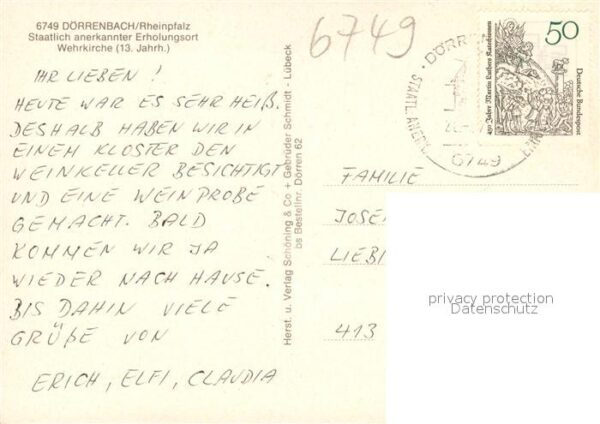 6749 DÖRRENBACH/Rheinpfalz
Staatlich anerkannter Erholungsort
Wehrkirche (13. Jahrh.)
IHR LIEBEN !
HEUTE WAR ES SEHR HEIß.
DESHALB HABEN WIR IN
EINEM KLOSTER DEN
WEINKELLER BESICHTIGT
UND EINE WEINPROBE
GEMACHT. BALD
KOMMEN WIR JA
WIEDER NACH HAUSE.
BIS DAHIN VIELE
GRÜßE VON
ERICH, ELFI, CLAUDIA
Herst. u. Verlag Schöning & Co + Gebrüder Schmidt - Lübeck
bs Bestellnr. Dörren 62
6749
DÖRR
STAATL. ANERK.
6749
50
Deutsche Bundespost
450 Jahre Martin Luthers Katechismus
FAMILIE
JOSE
LIEBI
413
privacy protection
Datenschutz